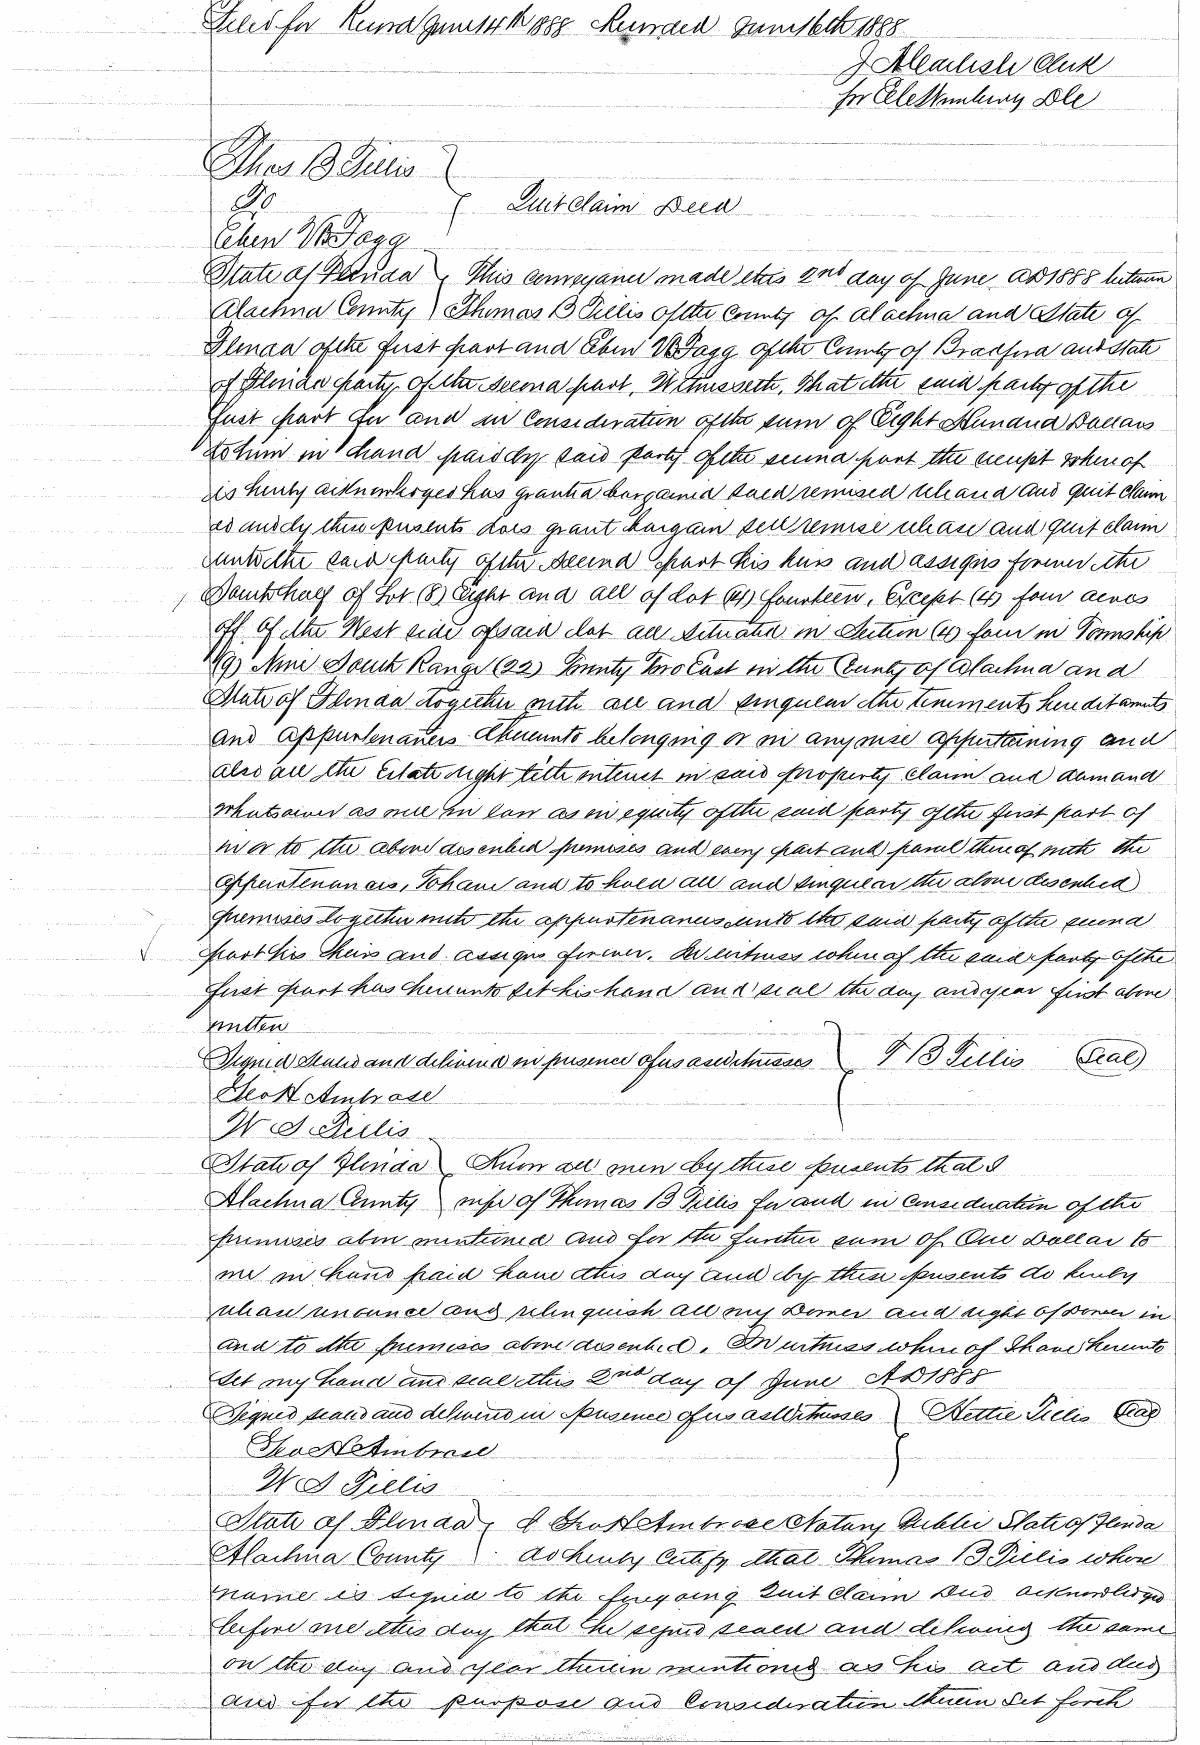 Filed for Record June 14th 1888 Recorded June 16th 1888
Clerk
for DC
Thos B Tillis
To
Quit Claim Deed
Eben W Fagg
State of Florida This conveyance made this 2nd day of June AD 1888 between
Alachua County Thomas B Tillis of the County of Alachua and State of
Florida of the first part and Eben W Fagg of the County of Bradford and State
of Florida party of the second part, Witnesseth, That the said party of the
first part for and in Consideration of the sum of Eight Hundred Dollars
to him in hand paid by said party of the second part the receipt whereof
is hereby acknowledged has granted bargained sold remised released and quit claim
ed and by these presents does grant bargain sell remise release and quit claim
unto the said party of the second part his heirs and assigns forever the
South half of Lot (8) Eight and all of Lot fourteen, Except (4) four acres
off of the West side of said Lot all situated in Section (4) four in Township
(9) Nine South Range (22) Twenty Two East in the County of Alachua and
State of Florida together with all and singular the tenements hereditaments
and appurtenances thereunto belonging or in anywise appertaining and
also all the Estate right title interest in said property claim and demand
whatsoever as well in law as in equity of the said party of the first part of
in or to the above described premises and every part and parcel thereof with the
appurtenances, To have and to hold all and singular the above described
premises together with the appurtenances unto the said party of the second
part his heirs and assigns forever. In witness whereof the said party of the
first part has hereunto set his hand and seal the day and year first above
written
Signed sealed and delivered in presence of us as witnesses T B Tillis (Seal)
Geo H Ambrose
W S Tillis
State of Florida Know all men by these presents that I
Alachua County wife of Thomas B Tillis for and in consideration of the
premises above mentioned and for the further sum of One Dollar to
me in hand paid have this day and by these presents do hereby
release renounce and relinquish all my Dower and right of Dower in
and to the premises above described. In witness whereof I have hereunto
set my hand and seal this 2nd day of June AD 1888
Signed sealed and delivered in presence of us as Witnesses Hettie Tillis (Seal)
Geo H Ambrose
W S Tillis
State of Florida I Geo H Ambrose Notary Public State of Florida
Alachua County do hereby Certify that Thomas B Tillis whose
name is signed to the foregoing Quit Claim Deed acknowledged
before me this day that he signed sealed and delivered the same
on the day and year therein mentioned as his act and deed
and for the purpose and Consideration therein set forth